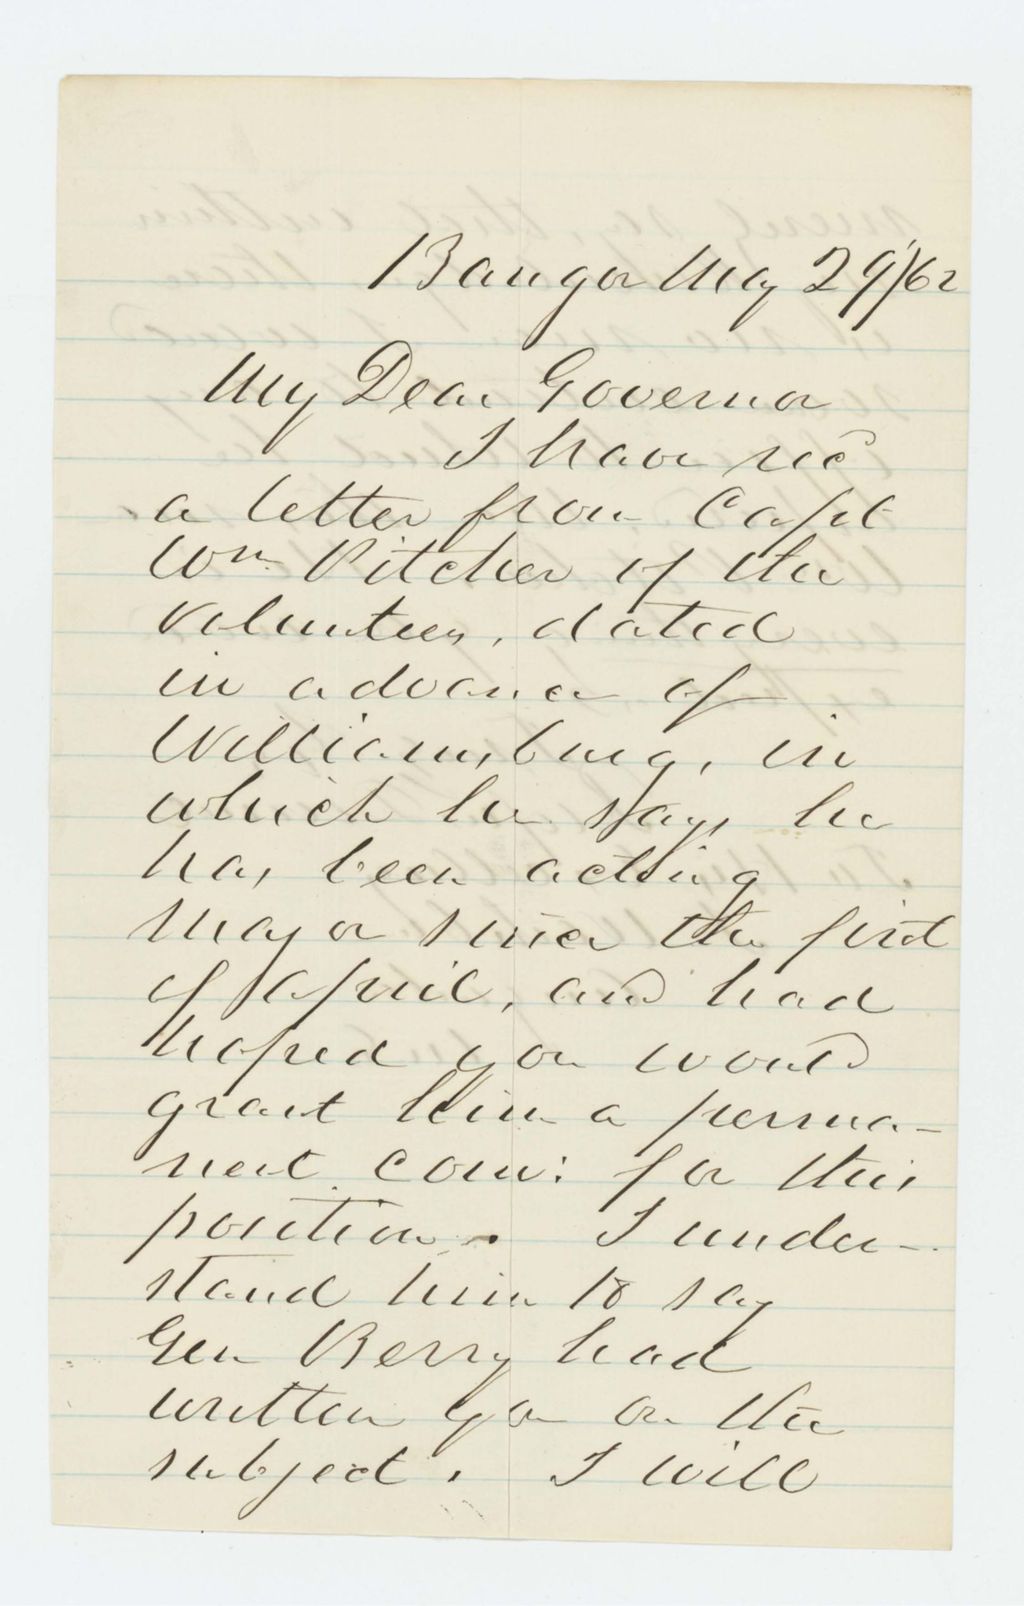 Bangor May 29/62
My Dear Governor
I have recd
a letter from Capt
Wm. Pitcher of the
volunteers, dated
in advance of
Williamsburg, in
which he says he
has been acting
Major since the first
of April, and had
hoped you would
grant him a perma-
nent com: for this
position. I under-
stand him to say
Gen Berry had
written you on the
subject. I will